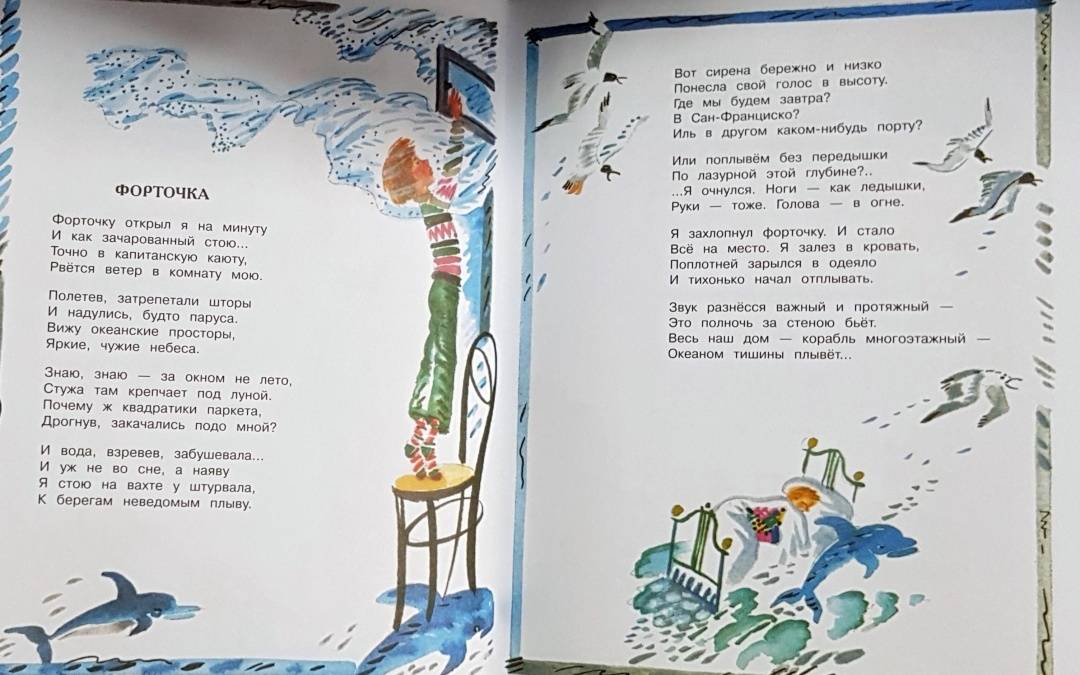 ФОРТОЧКА
Форточку открыл я на минуту
И как зачарованный стою...
Точно в капитанскую каюту,
Рвётся ветер в комнату мою.
Полетев, затрепетали шторы
И надулись, будто паруса.
Вижу океанские просторы,
Яркие, чужие небеса.
Знаю, знаю — за окном не лето,
Стужа там крепчает под луной.
Почему ж квадратики паркета,
Дрогнув, закачались подо мной?
И вода, взревев, забушевала...
И уж не во сне, а наяву
Я стою на вахте у штурвала,
К берегам неведомым плыву.
Вот сирена бережно и низко
Понесла свой голос в высоту.
Где мы будем завтра?
В Сан-Франциско?
Иль в другом каком-нибудь порту?
Или поплывём без передышки
По лазурной этой глубине?..
...Я очнулся. Ноги — как ледышки,
Руки — тоже. Голова — в огне.
Я захлопнул форточку. И стало
Всё на место. Я залез в кровать,
Поплотней зарылся в одеяло
И тихонько начал отплывать.
Звук разнёсся важный и протяжный —
Это полночь за стеною бьёт.
Весь наш дом — корабль многоэтажный —
Океаном тишины плывёт...